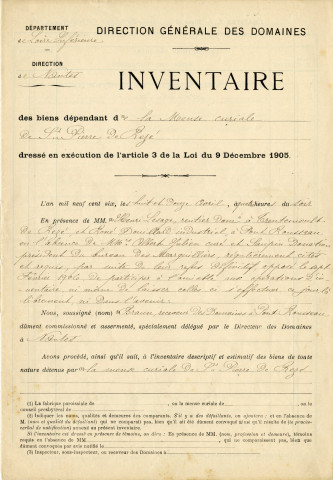 DÉPARTEMENT
de Loire Inférieure
DIRECTION
de Nantes
DIRECTION GÉNÉRALE DES DOMAINES
INVENTAIRE
des biens dépendant de la Mense curiale
de St Pierre de Rezé
dressé en exécution de l'article 3 de la Loi du 9 Décembre 1905.
L'an mil neuf cent six, les huit et douze Avril, heures du soir
En présence de MM. Henri Lesage, rentier à Trentemoult
de Rezé et industriel à Pont Rousseau
en l'absence de MM. Julien curé et
président du bureau des Marguilliers, régulièrement cités
et requis, par suite de leur refus
Février 1906 de participer à l'amiable aux opérations d'in-
ventaire, ni même de laisser celles-ci s'effectuer ce jour là
librement, ni dans l'avenir.
Nous, soussigné receveur des Domaines à Pont Rousseau
dûment commissionné et assermenté, spécialement délégué par le Directeur des Domaines
à Nantes
Avons procédé, ainsi qu'il suit, à l'inventaire descriptif et estimatif des biens de toute
nature détenus par la mense curiale de St Pierre de Rezé
(1) La fabrique paroissiale de , ou la mense curiale de , ou le
conseil presbytéral de
(2) Indiquer les noms, qualités et demeures des comparants. S'il y a des défaillants, on ajoutera : et en l'absence de
M. (nom et qualité du défaillant) qui ne comparaît pas, bien qu'il ait été dûment convoqué ainsi qu'il résulte de (ou procès-
verbal de notification) annexé au présent inventaire.
Si l'inventaire est dressé en présence de témoins, on dira : En présence de MM. (nom, profession et demeure), témoins
requis en l'absence de MM. , qui ne comparaissent pas, bien que
dûment convoqués par avis notifié le
(3) Inspecteur, sous-inspecteur, ou receveur des Domaines à